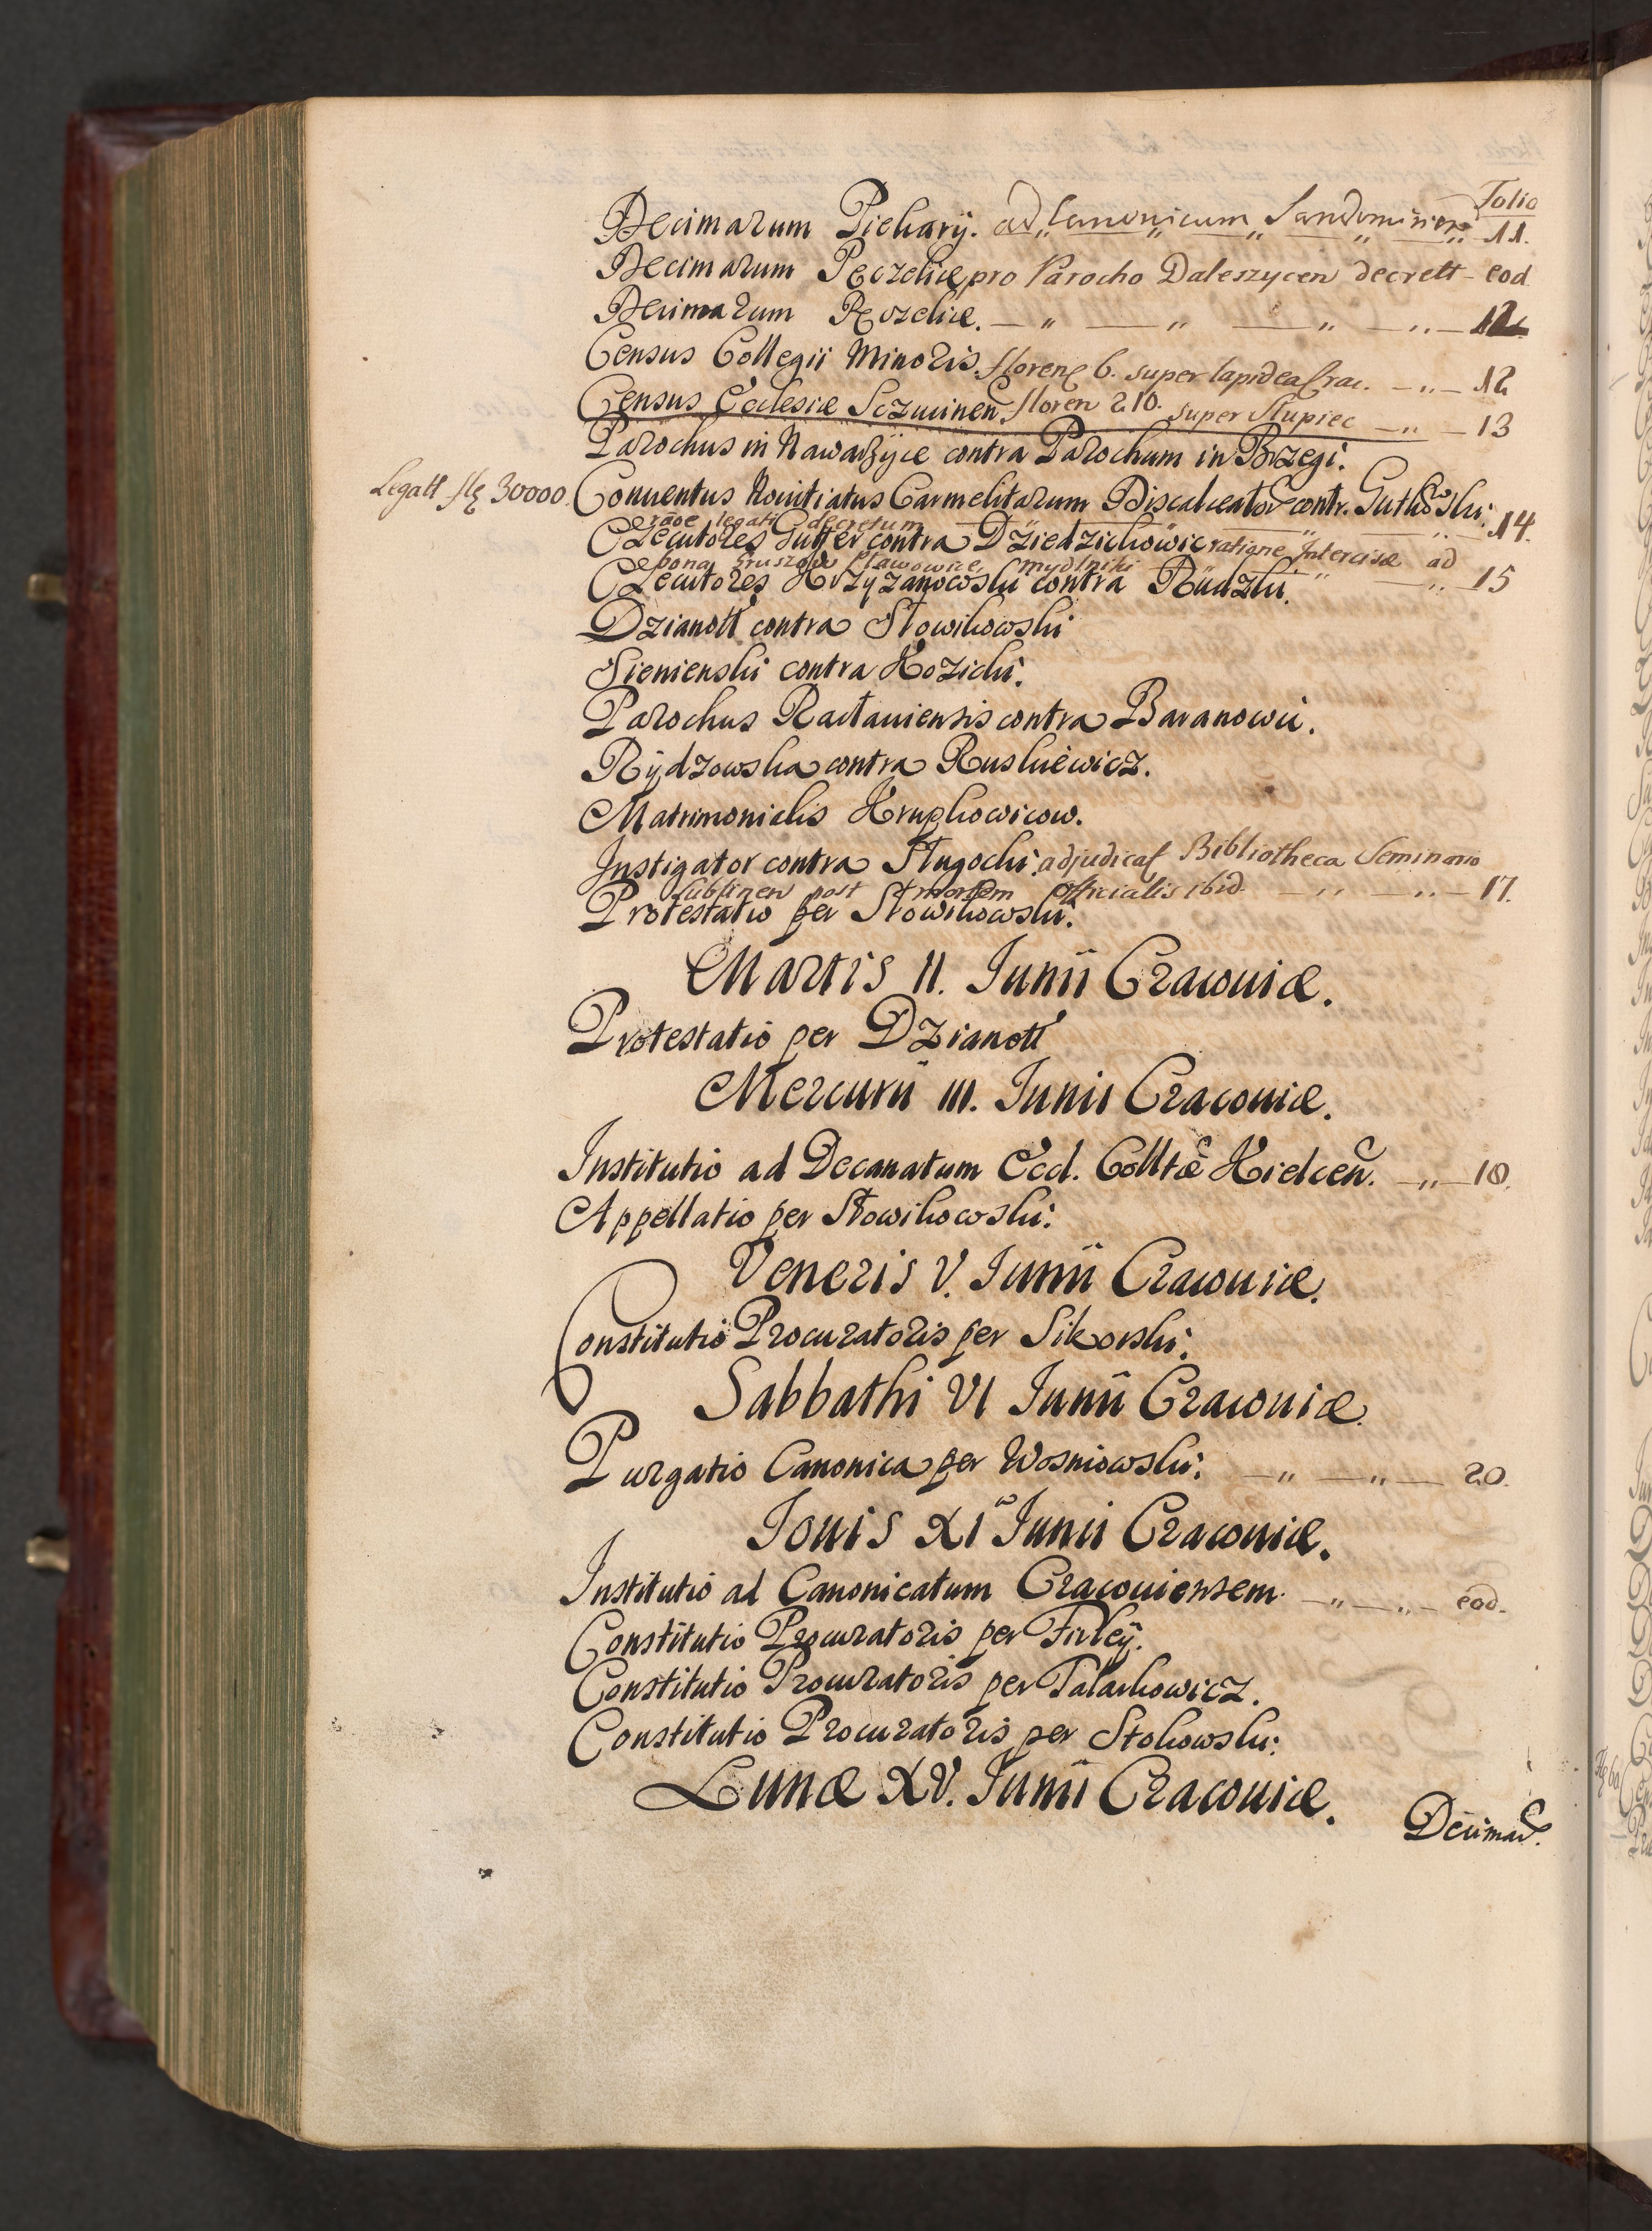 Folio
Decimarum Piekary. ad Canonicum Sandomirien 11.
Decimarum Peczelice pro Parocho Daleszycen decrett - eod
Decimarum Peczelice. — " — " — " — " — 12
Census Collegii Minoris. floren 6. super lapidea Crac. — " — 12
Census Ecclesiæ Sczucinen. floren 210. super Słupiec — " — 13
Parochus in Nawarzyce contra Parochum in Brzegi.
Legatt flg 30000. Conuentus Nouitiatus Carmelitarum Discalceator contr. Gutkowski.
rãoe legati decretum — 14.
Executores Sutter contra Dziedzichowic ratione Intercisæ ad
bona Gruszow Pławowice, Mydlniki — " — 15
Executores Krzyzanowski contra Rudzki.
Dzianott contra Słowikowski
Sienienski contra Kozicki.
Parochus Ractauiensis contra Baranowii.
Rydzowska contra Ruskiewicz.
Matrimonialis Krupkowicow.
Instigator contra Długocki. adjudicat Bibliotheca Seminario
Lublinen post mortem Officialis ibid — " — " — 17.
Protestatio per Słowikowski.
Martis II. Junii Cracouiæ.
Protestatio per Dzianott
Mercurii III. Junii Cracouiæ.
Institutio ad Decanatum Eccl. Colltæ Kielcen. — " — 10.
Appellatio per Słowikowski.
Veneris V. Junii Cracouiæ.
Constitutio Procuratoris per Sikorski.
Sabbathi VI Junii Cracouiæ.
Purgatio Canonica per Wosniowski. — " — " — 20.
Jouis XI Junii Cracouiæ.
Institutio ad Canonicatum Cracouiensem. — " — " — eod.
Constitutio Procuratoris per Firley.
Constitutio Procuratoris per Talarkowicz.
Constitutio Procuratoris per Stokowski.
Lunæ XV. Junii Cracouiæ.
Decimar.